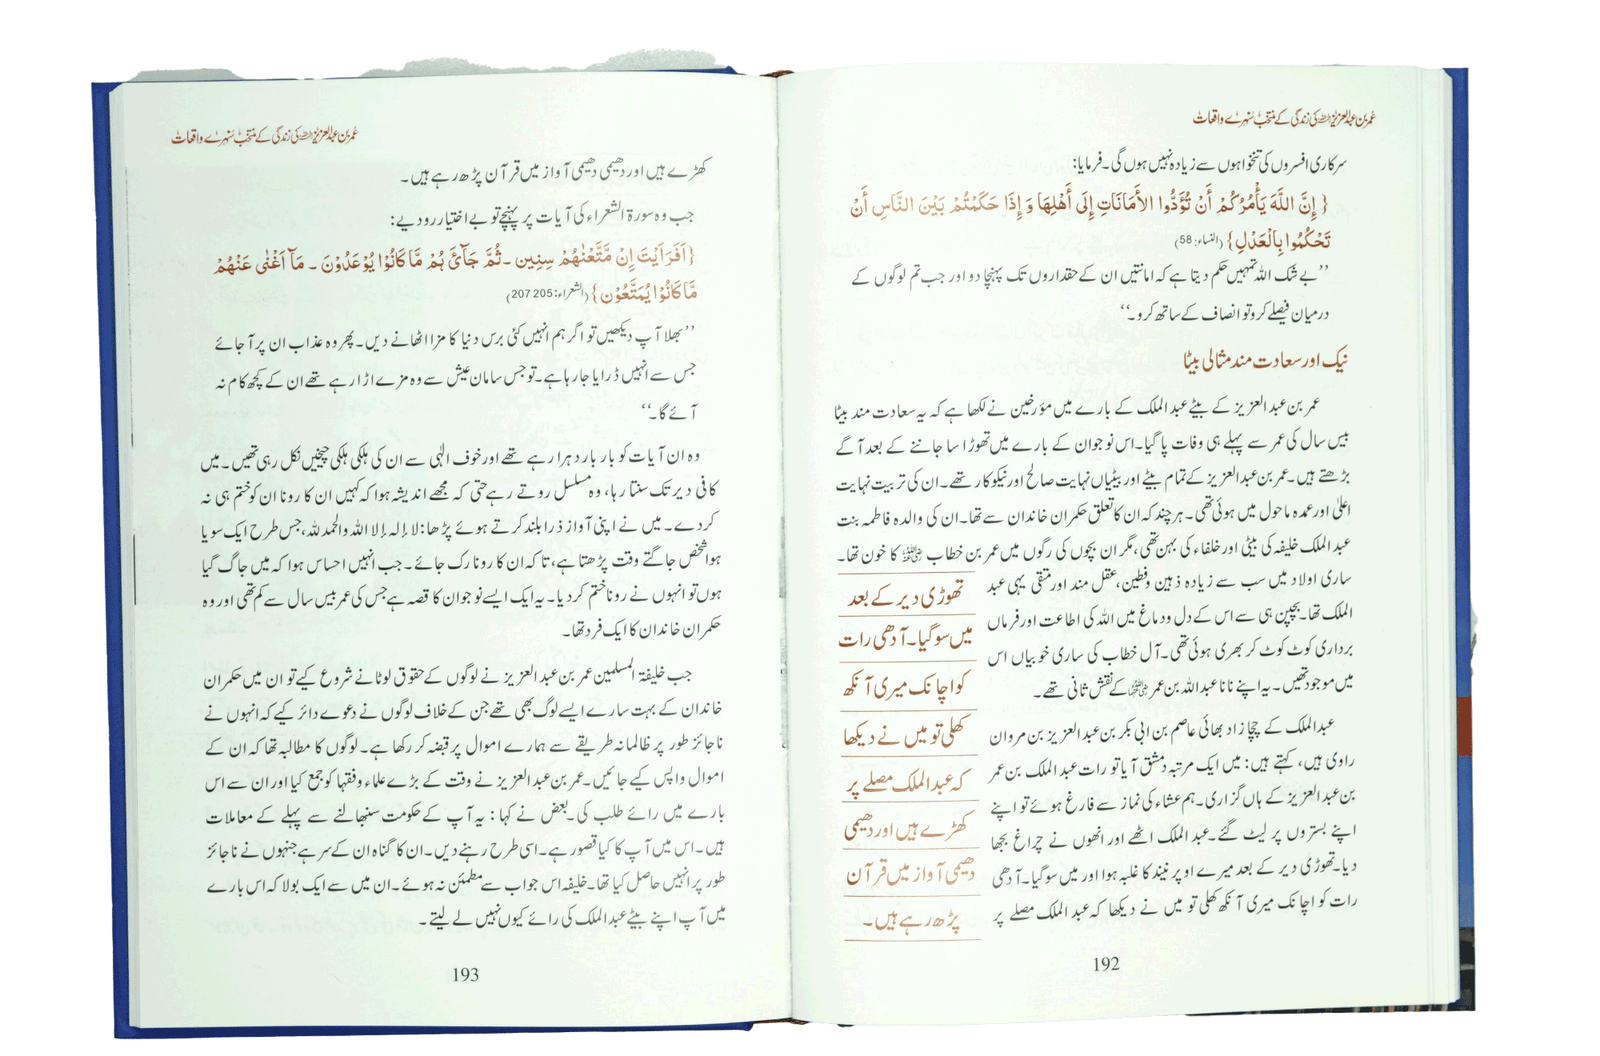 عمر بن عبدالعزیز رحمہ اللہ کی زندگی کے منتخب سنہرے واقعات
سرکاری افسروں کی تنخواہوں سے زیادہ نہیں ہوں گی۔ فرمایا:
{إِنَّ اللَّهَ يَأْمُرُكُمْ أَنْ تُؤَدُّوا الأَمَانَاتِ إِلَى أَهْلِهَا وَإِذَا حَكَمْتُمْ بَيْنَ النَّاسِ أَنْ
تَحْكُمُوا بِالْعَدْلِ} (النساء: 58)
’’بے شک اللہ تمہیں حکم دیتا ہے کہ امانتیں ان کے حقداروں تک پہنچا دو اور جب تم لوگوں کے
درمیان فیصلے کرو تو انصاف کے ساتھ کرو۔‘‘
نیک اور سعادت مند مثالی بیٹا
عمر بن عبدالعزیز کے بیٹے عبدالملک کے بارے میں مؤرخین نے لکھا ہے کہ یہ سعادت مند بیٹا
بیس سال کی عمر سے پہلے ہی وفات پا گیا۔ اس نوجوان کے بارے میں تھوڑا سا جاننے کے بعد آگے
بڑھتے ہیں۔ عمر بن عبدالعزیز کے تمام بیٹے اور بیٹیاں نہایت صالح اور نیکوکار تھے۔ ان کی تربیت نہایت
اعلیٰ اور عمدہ ماحول میں ہوئی تھی۔ ہر چند کہ ان کا تعلق حکمران خاندان سے تھا۔ ان کی والدہ فاطمہ بنت
عبدالملک خلیفہ کی بیٹی اور خلفاء کی بہن تھی، مگر ان بچوں کی رگوں میں عمر بن خطاب رضی اللہ عنہ کا خون تھا۔
ساری اولاد میں سب سے زیادہ ذہین وفطین، عقل مند اور متقی یہی عبد
الملک تھا۔ بچپن ہی سے اس کے دل ودماغ میں اللہ کی اطاعت اور فرماں
برداری کوٹ کوٹ کر بھری ہوئی تھی۔ آل خطاب کی ساری خوبیاں اس
میں موجود تھیں۔ یہ اپنے نانا عبداللہ بن عمر رضی اللہ عنہ کے نقش ثانی تھے۔
عبدالملک کے چچا زاد بھائی عاصم بن ابی بکر بن عبدالعزیز بن مروان
راوی ہیں، کہتے ہیں: میں ایک مرتبہ دمشق آیا تو رات عبدالملک بن عمر
بن عبدالعزیز کے ہاں گزاری۔ ہم عشاء کی نماز سے فارغ ہوئے تو اپنے
اپنے بستروں پر لیٹ گئے۔ عبدالملک اٹھے اور انھوں نے چراغ بجھا
دیا۔ تھوڑی دیر کے بعد میرے اوپر نیند کا غلبہ ہوا اور میں سو گیا۔ آدھی
رات کو اچانک میری آنکھ کھلی تو میں نے دیکھا کہ عبدالملک مصلے پر
تھوڑی دیر کے بعد
میں سو گیا۔ آدھی رات
کو اچانک میری آنکھ
کھلی تو میں نے دیکھا
کہ عبدالملک مصلے پر
کھڑے ہیں اور دھیمی
دھیمی آواز میں قرآن
پڑھ رہے ہیں۔
192
عمر بن عبدالعزیز رحمہ اللہ کی زندگی کے منتخب سنہرے واقعات
کھڑے ہیں اور دھیمی دھیمی آواز میں قرآن پڑھ رہے ہیں۔
جب وہ سورۃ الشعراء کی آیات پر پہنچے تو بے اختیار رو دیے:
{اَفَرَاَيْتَ اِنْ مَّتَّعْنٰهُمْ سِنِيْن ۔ ثُمَّ جَآئَ هُمْ مَّا كَانُوْا يُوْعَدُوْنَ ۔ مَآ اَغْنٰى عَنْهُمْ
مَّا كَانُوْا يُمَتَّعُوْن} (الشعراء: 205 207)
’’بھلا آپ دیکھیں تو اگر ہم انہیں کئی برس دنیا کا مزا اٹھانے دیں۔ پھر وہ عذاب ان پر آجائے
جس سے انہیں ڈرایا جا رہا ہے۔ تو جس سامان عیش سے وہ مزے اڑا رہے تھے ان کے کچھ کام نہ
آئے گا۔‘‘
وہ ان آیات کو بار بار دہرا رہے تھے اور خوف الٰہی سے ان کی ہلکی ہلکی چیخیں نکل رہی تھیں۔ میں
کافی دیر تک سنتا رہا، وہ مسلسل روتے رہے حتی کہ مجھے اندیشہ ہوا کہ کہیں ان کا رونا ان کو ختم ہی نہ
کر دے۔ میں نے اپنی آواز ذرا بلند کرتے ہوئے پڑھا: لا إلہ إلا اللہ والحمد للہ، جس طرح ایک سویا
ہوا شخص جاگتے وقت پڑھتا ہے، تاکہ ان کا رونا رک جائے۔ جب انہیں احساس ہوا کہ میں جاگ گیا
ہوں تو انہوں نے رونا ختم کر دیا۔ یہ ایک ایسے نوجوان کا قصہ ہے جس کی عمر بیس سال سے کم تھی اور وہ
حکمران خاندان کا ایک فرد تھا۔
جب خلیفۃ المسلمین عمر بن عبدالعزیز نے لوگوں کے حقوق لوٹانے شروع کیے تو ان میں حکمران
خاندان کے بہت سارے ایسے لوگ بھی تھے جن کے خلاف لوگوں نے دعوے دائر کیے کہ انہوں نے
ناجائز طور پر ظالمانہ طریقے سے ہمارے اموال پر قبضہ کر رکھا ہے۔ لوگوں کا مطالبہ تھا کہ ان کے
اموال واپس کیے جائیں۔ عمر بن عبدالعزیز نے وقت کے بڑے علماء وفقہا کو جمع کیا اور ان سے اس
بارے میں رائے طلب کی۔ بعض نے کہا: یہ آپ کے حکومت سنبھالنے سے پہلے کے معاملات
ہیں۔ اس میں آپ کا کیا قصور ہے۔ اسی طرح رہنے دیں۔ ان کا گناہ ان کے سر ہے جنہوں نے ناجائز
طور پر انہیں حاصل کیا تھا۔ خلیفہ اس جواب سے مطمئن نہ ہوئے۔ ان میں سے ایک بولا کہ اس بارے
میں آپ اپنے بیٹے عبدالملک کی رائے کیوں نہیں لے لیتے۔
193